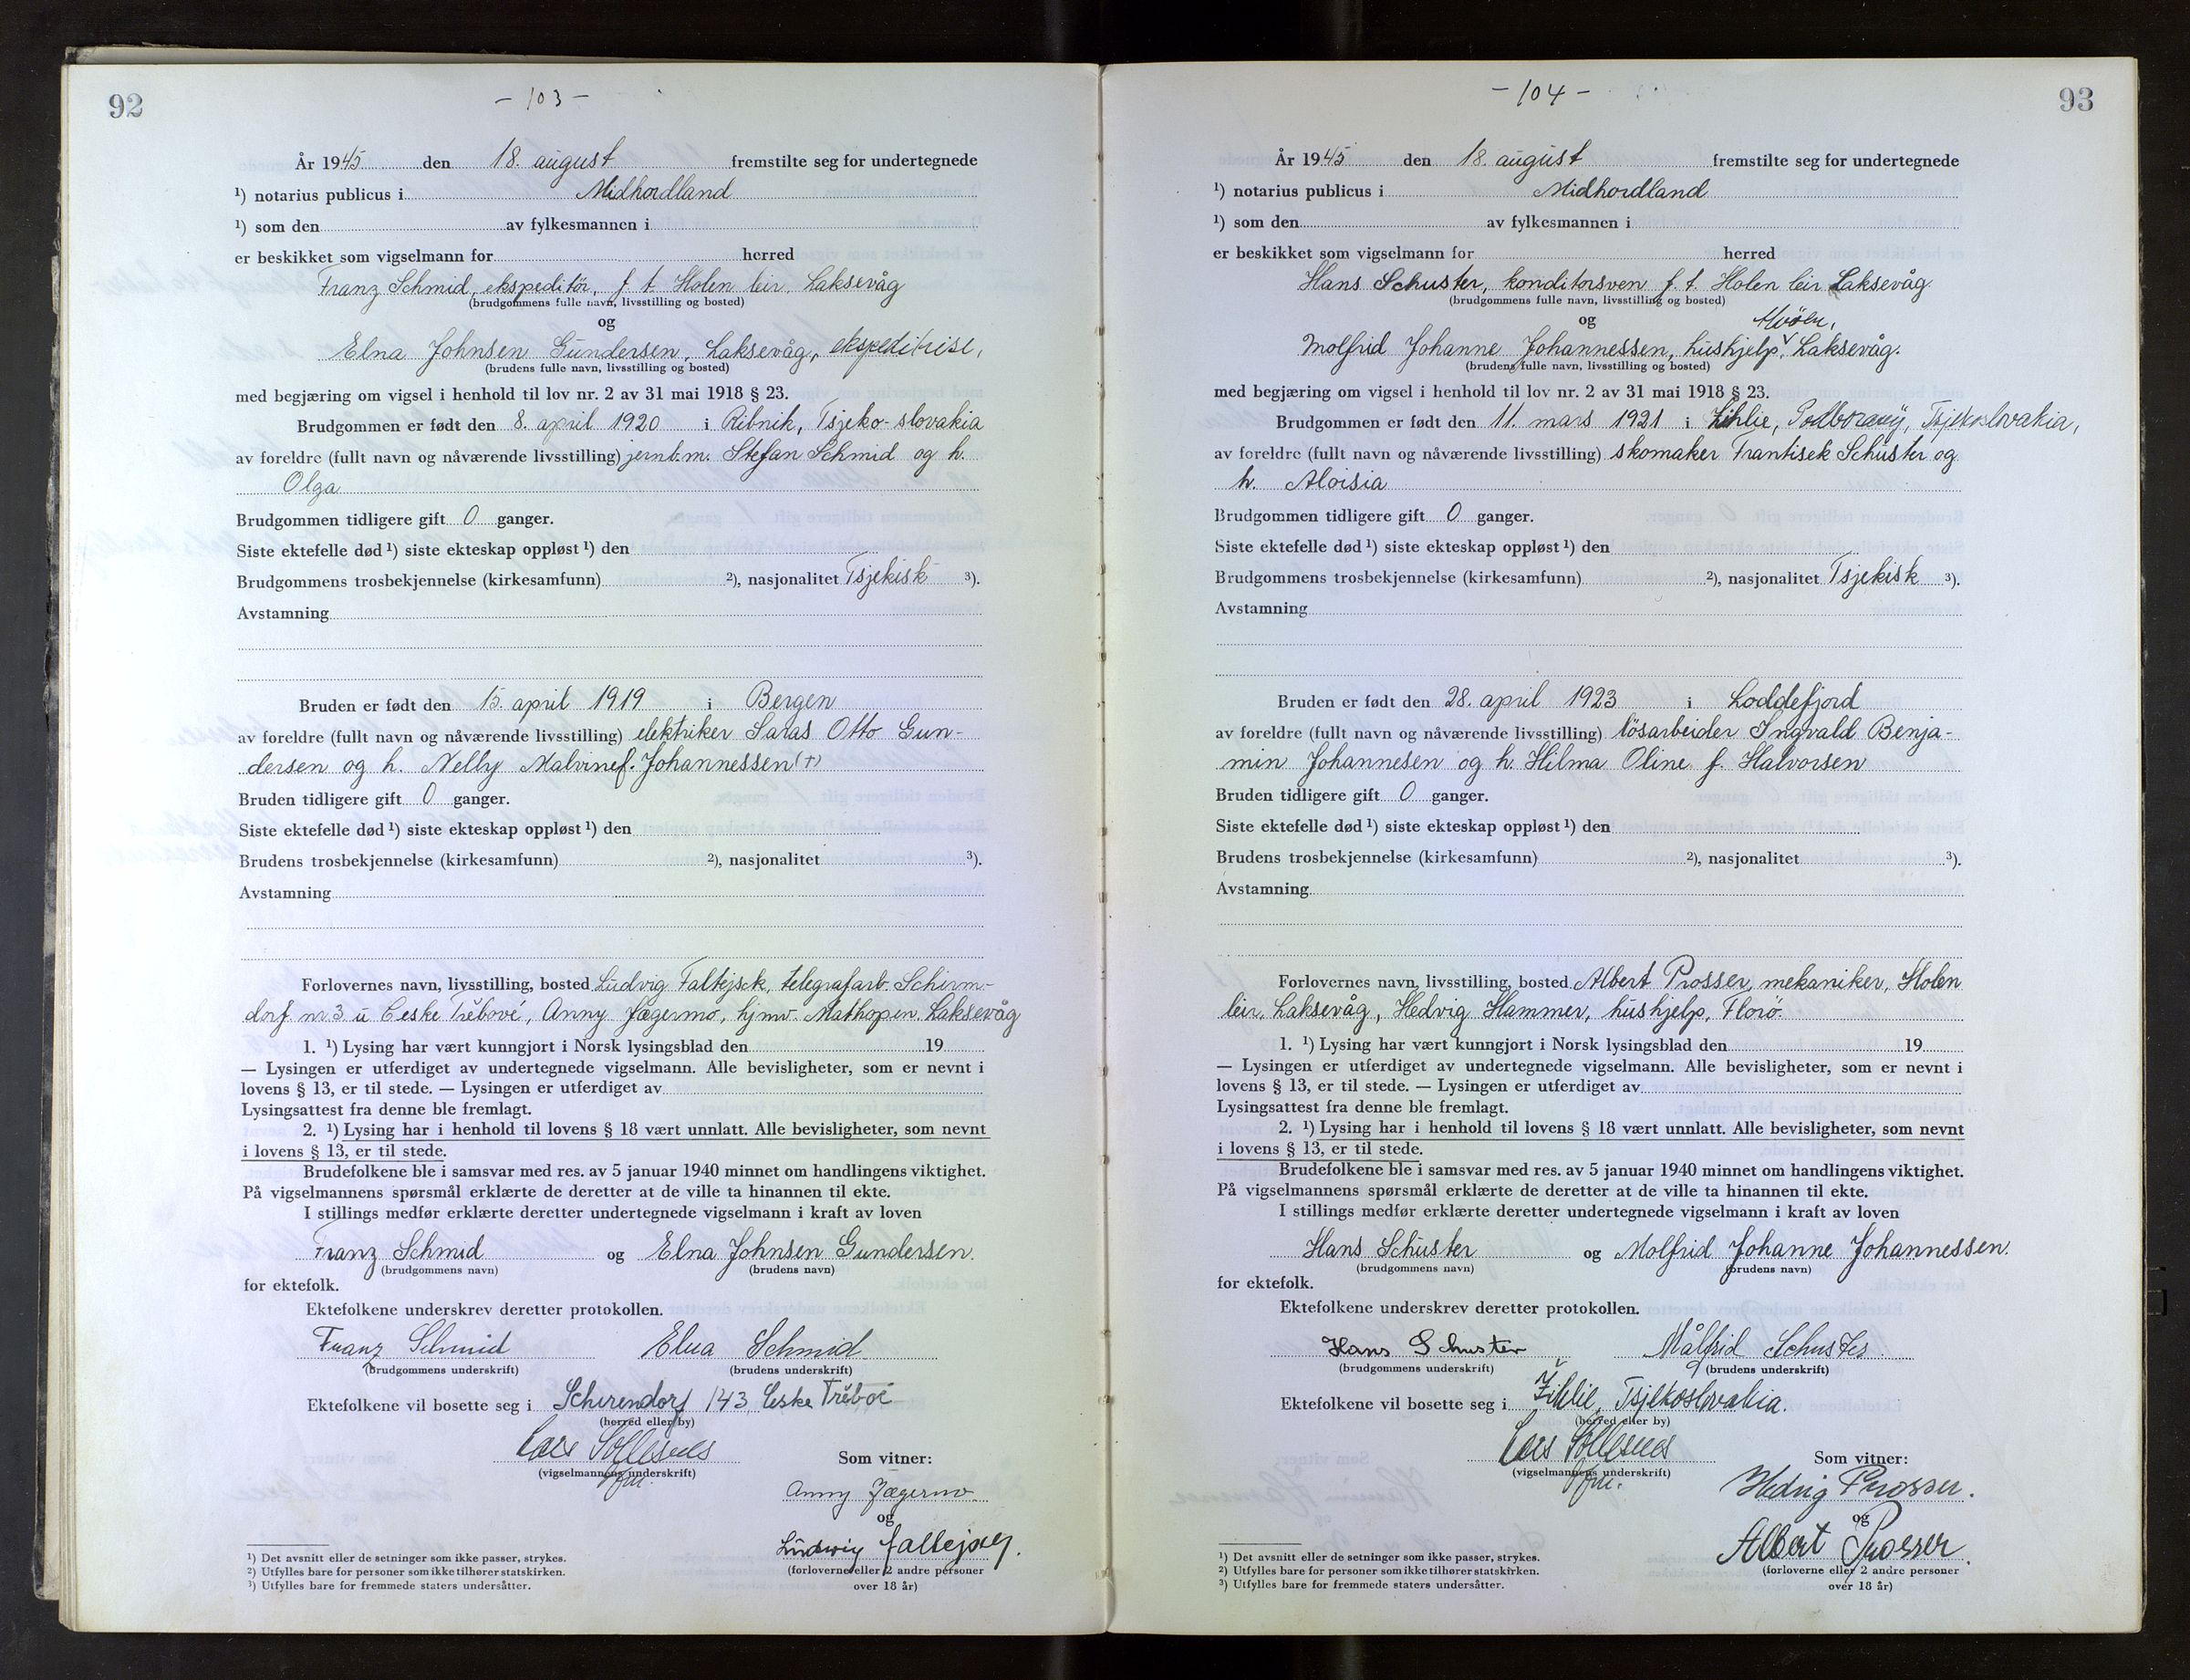 92
- 103 -
År 1945 den 18. august fremstilte seg for undertegnede
¹) notarius publicus i Midhordland
¹) som den av fylkesmannen i
er beskikket som vigselmann for herred
Franz Schmid, ekspeditör, f. t. Holen leir, Laksevåg
(brudgommens fulle navn, livsstilling og bosted)
og
Elna Johnsen Gundersen, Laksevåg, ekspeditrise,
(brudens fulle navn, livsstilling og bosted)
med begjæring om vigsel i henhold til lov nr. 2 av 31 mai 1918 § 23.
Brudgommen er født den 8. april 1920 i Ribnik, Tsjeko-slovakia
av foreldre (fullt navn og nåværende livsstilling) jernb.m. Stefan Schmid og h.
Olga
Brudgommen tidligere gift 0 ganger.
Siste ektefelle død ¹) siste ekteskap oppløst ¹) den
Brudgommens trosbekjennelse (kirkesamfunn) ²), nasjonalitet Tsjekisk ³).
Avstamning
Bruden er født den 15. april 1919 i Bergen
av foreldre (fullt navn og nåværende livsstilling) elektriker Otto Gun-
dersen og h. Nelly Malvine f. Johannessen (+)
Bruden tidligere gift 0 ganger.
Siste ektefelle død ¹) siste ekteskap oppløst ¹) den
Brudens trosbekjennelse (kirkesamfunn) ²), nasjonalitet ³).
Avstamning
Forlovernes navn, livsstilling, bosted Ludvig Faltejsek, telegrafarb. Schirm-
dorf nr. 3 u Ceske Třebové, Anny Jægermo, hjmv. Mathopen, Laksevåg
1. ¹) Lysing har vært kunngjort i Norsk lysingsblad den 19
— Lysingen er utferdiget av undertegnede vigselmann. Alle bevisligheter, som er nevnt i
lovens § 13, er til stede. — Lysingen er utferdiget av
Lysingsattest fra denne ble fremlagt.
2. ¹) Lysing har i henhold til lovens § 18 vært unnlatt. Alle bevisligheter, som nevnt
i lovens § 13, er til stede.
Brudefolkene ble i samsvar med res. av 5 januar 1940 minnet om handlingens viktighet.
På vigselmannens spørsmål erklærte de deretter at de ville ta hinannen til ekte.
I stillings medfør erklærte deretter undertegnede vigselmann i kraft av loven
Franz Schmid og Elna Johnsen Gundersen.
(brudgommens navn) (brudens navn)
for ektefolk.
Ektefolkene underskrev deretter protokollen.
Franz Schmid Elna Schmid
(brudgommens underskrift) (brudens underskrift)
Ektefolkene vil bosette seg i Schirendorf 143, Ceske
(herred eller by)
Som vitner:
(vigselmannens underskrift)
Anny Jægermo
og
Ludwig Faltejsek.
(forloverne eller 2 andre personer
over 18 år)
¹) Det avsnitt eller de setninger som ikke passer, strykes.
²) Utfylles bare for personer som ikke tilhører statskirken.
³) Utfylles bare for fremmede staters undersåtter.
93
- 104 -
År 1945 den 18. august fremstilte seg for undertegnede
¹) notarius publicus i Midhordland
¹) som den av fylkesmannen i
er beskikket som vigselmann for herred
Hans Schuster, konditorsven f. t. Holen leir Laksevåg
(brudgommens fulle navn, livsstilling og bosted)
og
Molfrid Johanne Johannessen, hushjelp, Laksevåg.
(brudens fulle navn, livsstilling og bosted)
med begjæring om vigsel i henhold til lov nr. 2 av 31 mai 1918 § 23.
Brudgommen er født den 11. mars 1921 i Zihlie, Podborany, Tsjekoslovakia,
av foreldre (fullt navn og nåværende livsstilling) skomaker Frantisek Schuster og
h. Aloisia
Brudgommen tidligere gift 0 ganger.
Siste ektefelle død ¹) siste ekteskap oppløst ¹) den
Brudgommens trosbekjennelse (kirkesamfunn) ²), nasjonalitet Tsjekisk ³).
Avstamning
Bruden er født den 28. april 1923 i Loddefjord
av foreldre (fullt navn og nåværende livsstilling) lösarbeider Ingvald Benja-
min Johannesen og h. Hilma Oline f. Halvorsen
Bruden tidligere gift 0 ganger.
Siste ektefelle død ¹) siste ekteskap oppløst ¹) den
Brudens trosbekjennelse (kirkesamfunn) ²), nasjonalitet ³).
Avstamning
Forlovernes navn, livsstilling, bosted Albert Prosser, mekaniker, Holen
leir, Laksevåg, Hedvig Hammer, hushjelp, Florö.
1. ¹) Lysing har vært kunngjort i Norsk lysingsblad den 19
— Lysingen er utferdiget av undertegnede vigselmann. Alle bevisligheter, som er nevnt i
lovens § 13, er til stede. — Lysingen er utferdiget av
Lysingsattest fra denne ble fremlagt.
2. ¹) Lysing har i henhold til lovens § 18 vært unnlatt. Alle bevisligheter, som nevnt
i lovens § 13, er til stede.
Brudefolkene ble i samsvar med res. av 5 januar 1940 minnet om handlingens viktighet.
På vigselmannens spørsmål erklærte de deretter at de ville ta hinannen til ekte.
I stillings medfør erklærte deretter undertegnede vigselmann i kraft av loven
Hans Schuster og Molfrid Johanne Johannessen.
(brudgommens navn) (brudens navn)
for ektefolk.
Ektefolkene underskrev deretter protokollen.
Hans Schuster Målfrid Schuster.
(brudgommens underskrift) (brudens underskrift)
Ektefolkene vil bosette seg i Žihlie, Tsjekoslovakia.
(herred eller by)
Som vitner:
(vigselmannens underskrift)
Hedvig Prosser.
og
Albert Prosser.
(forloverne eller 2 andre personer
over 18 år)
¹) Det avsnitt eller de setninger som ikke passer, strykes.
²) Utfylles bare for personer som ikke tilhører statskirken.
³) Utfylles bare for fremmede staters undersåtter.